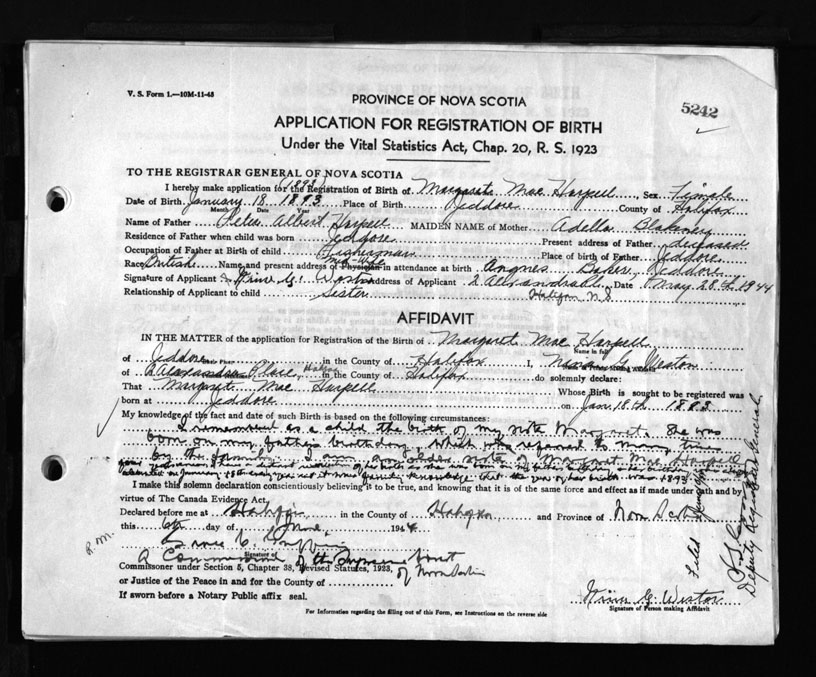 V. S. Form 1.—10M-11-43
PROVINCE OF NOVA SCOTIA
5242
APPLICATION FOR REGISTRATION OF BIRTH
Under the Vital Statistics Act, Chap. 20, R. S. 1923
TO THE REGISTRAR GENERAL OF NOVA SCOTIA
(1893)
I hereby make application for the Registration of Birth of Margaret Mae Harpell, Sex Female
Date of Birth January 18 1893 Place of Birth Jeddore County of Halifax
Month Date Year
Name of Father Peter Albert Harpell MAIDEN NAME of Mother Adella Blakeney
Residence of Father when child was born Jeddore Present address of Father deceased
Occupation of Father at Birth of child Fisherman Place of birth of Father Jeddore
Mid-Wife
Race British Name and present address of Physician in attendance at birth Angnes Baker Jeddore
Signature of Applicant G. Weston Address of Applicant 2 Date May 28th 1944
Relationship of Applicant to child Sister Halifax N.S.
AFFIDAVIT
IN THE MATTER of the application for Registration of the Birth of Margaret Mae Harpell
Name in full
of Jeddore in the County of Halifax I, G. Weston
of 2 Place, Halifax in the County of Halifax do solemnly declare:
That Margaret Mae Harpell Whose Birth is sought to be registered was
born at Jeddore on Jan. 18th 1893
My knowledge of the fact and date of such Birth is based on the following circumstances:
I remembered as a child the birth of my sister Margaret. She was
born on my father's birthday, which was referred to many times
by the family. I am an older sister of Margaret Mae Harpell
that the year of her birth was 1893
I make this solemn declaration conscientiously believing it to be true, and knowing that it is of the same force and effect as if made under oath and by
virtue of The Canada Evidence Act,
Declared before me at Halifax in the County of Halifax and Province of Nova Scotia
this 6th day of June, 1944
Grace C.
Signature of
A Commissioner of the Supreme Court
of Nova Scotia
Commissioner under Section 5, Chapter 38, Revised Statutes, 1923,
or Justice of the Peace in and for the County of
If sworn before a Notary Public affix seal.
G. Weston
Signature of Person making Affidavit
For Information regarding the filling out of this Form, see Instructions on the reverse side
Filed
Deputy Registrar General